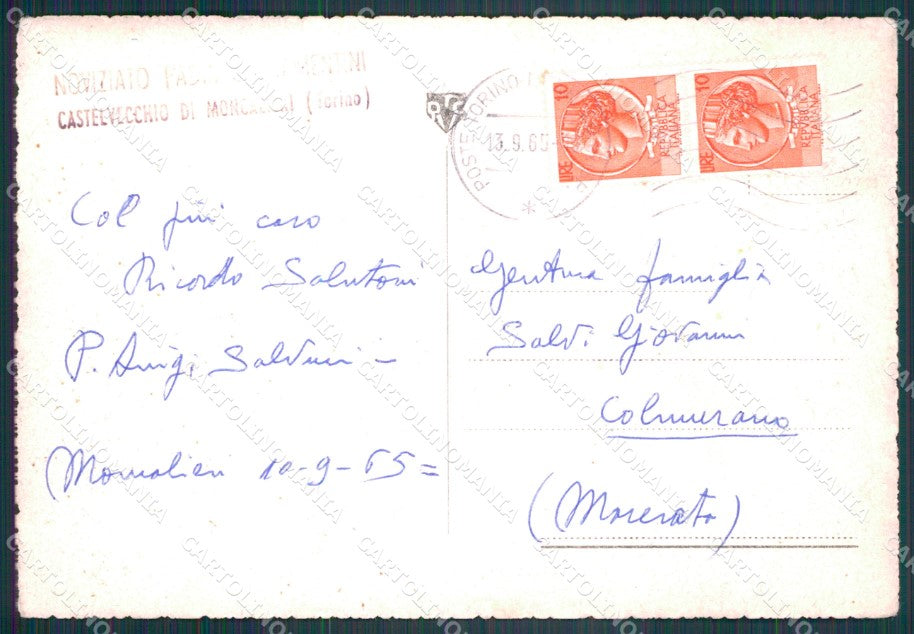 NOVIZIATO
CASTELVECCHIO DI MONCALIERI (Torino)
POSTE TORINO
13.9.65
LIRE 10
POSTE
REPVBBLICA
ITALIANA
LIRE 10
POSTE
REPVBBLICA
ITALIANA
Col più caro
Ricordo Salutoni
P. Luigi Salvini -
Moncalieri 10-9-65=
Gent.ma famiglia
Salvi Giovanni
Colmurano
(Macerata)
CARTOLINOMANIA